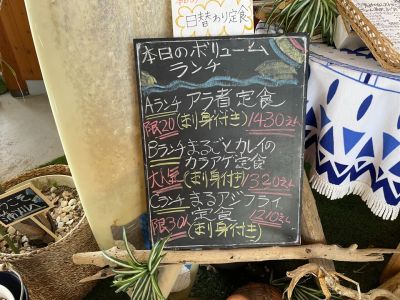 日替わり定食
本日のボリューム
ランチ
Aランチ アラ煮定食
限20(お刺身付き)1430えん
Bランチ まるごとカレイの
カラアゲ定食
大人気(お刺身付き)1320えん
Cランチ まるアジフライ
定食 1210えん
限30人(お刺身付き)